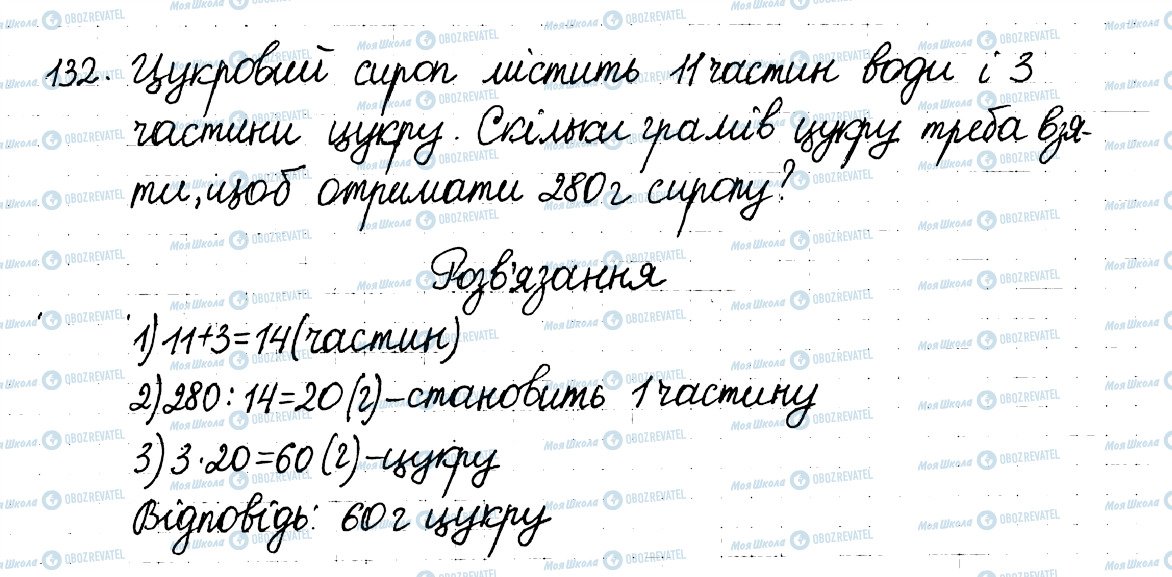 132. Цукровий сироп містить 11 частин води і 3
частини цукру. Скільки грамів цукру треба взя-
ти, щоб отримати 280 г сиропу?
Розв'язання
1) 11+3=14 (частин)
2) 280 : 14 = 20 (г) – становить 1 частину
3) 3 · 20 = 60 (г) – цукру
Відповідь: 60 г цукру
Моя Школа OBOZREVATEL